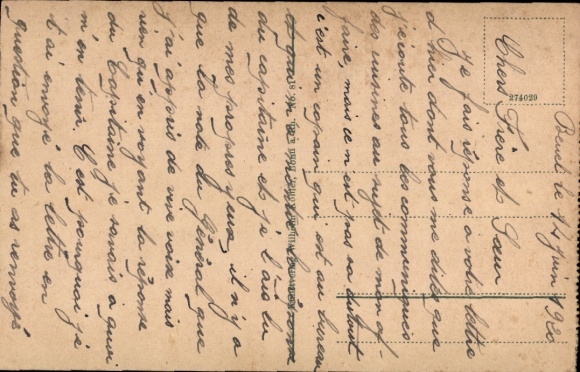 le 14 Juin 1920
Chers Frère et Soeur
Je fais réponse a votre lettre
d'hier dont vous me dites que
j'écoute tous les communiqués
des cuisines au sujet de mon af-
faire, mais ce n'est pas sa du tout
c'est un copain qui est au bureau
du capitaine et je l'ais lu
de mes propres yeux, il n'y a
que la note du Général que
j'ai appris de vive voix mais
rien qu'en voyant la réponse
du Capitaine je savais a quoi
m'en tenir. C'est pourquoi je
t'ai envoyé la lettre en
question que tu as renvoyé
274029